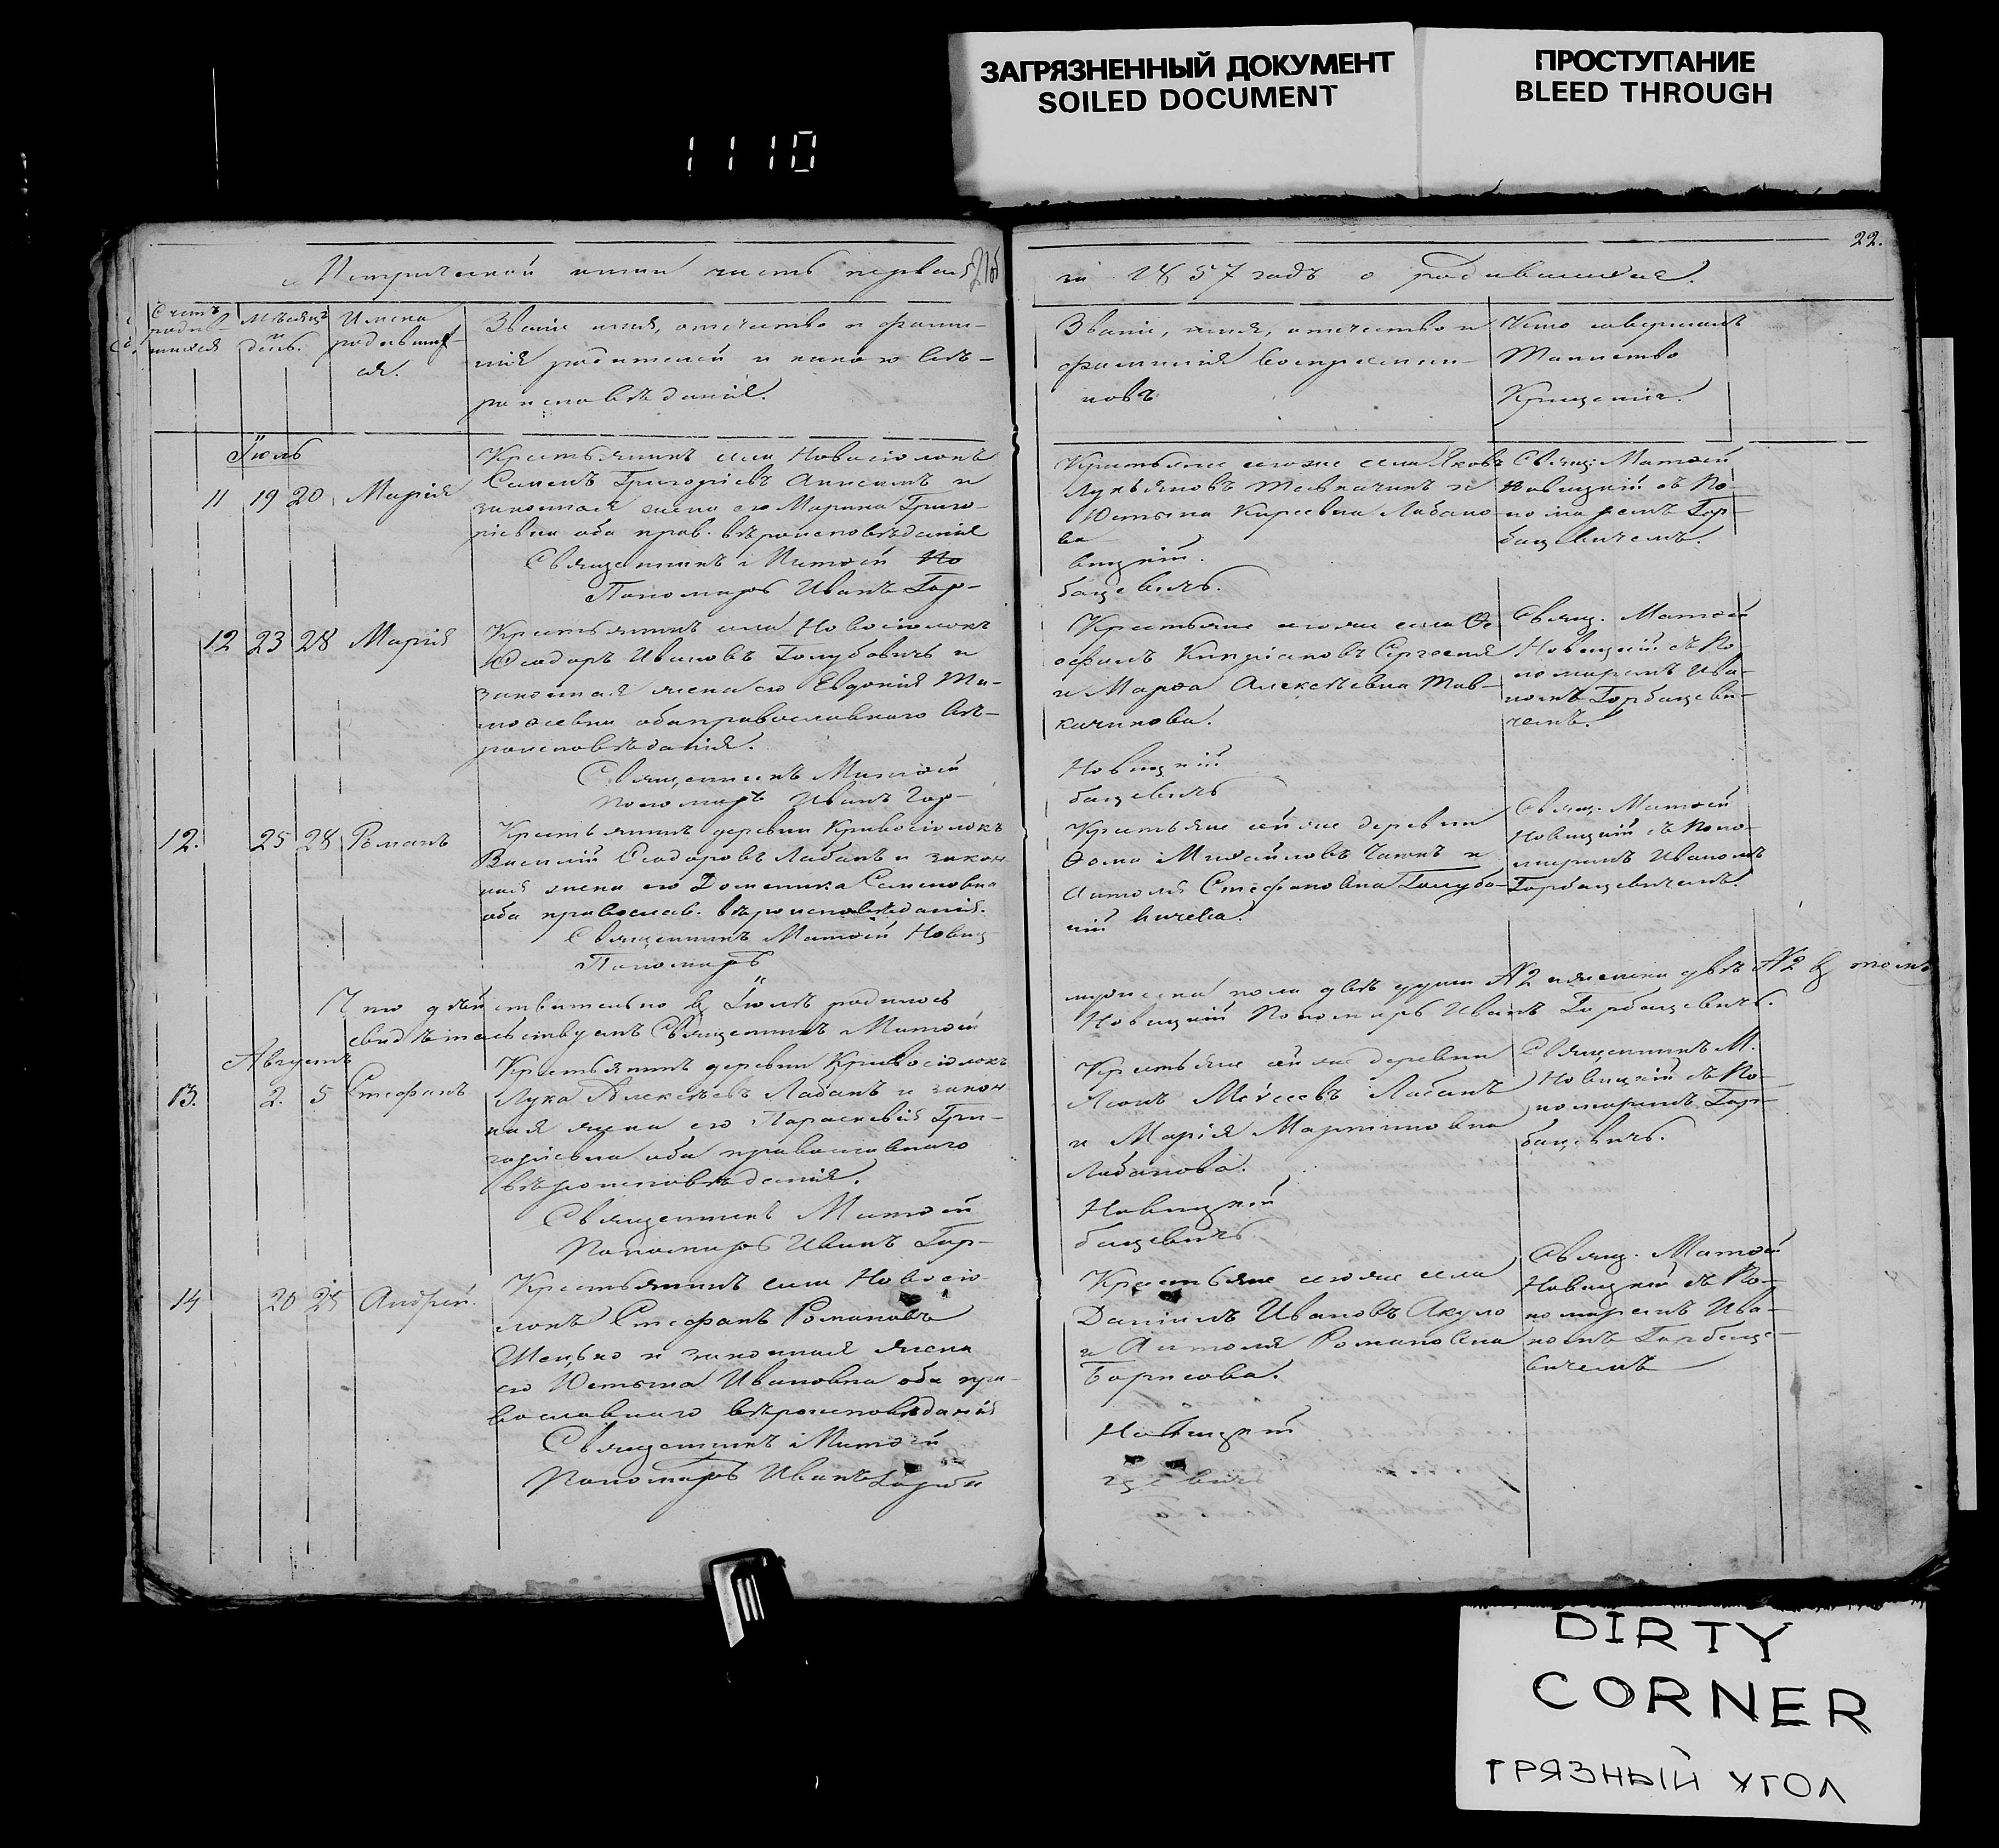 ЗАГРЯЗНЕННЫЙ ДОКУМЕНТ
SOILED DOCUMENT
ПРОСТУПАНИЕ
BLEED THROUGH
1110
Метрической книги часть первая
на 1857 годъ о родившихся.
22.
Счетъ родив-
шихся
Мѣсяцъ
и день.
Имена
родивших-
ся.
Званіе имя, отечество и фами-
лія родителей и какого вѣ-
роисповѣданія.
Званіе, имя, отечество и
фамилія воспріемни-
ковъ
Кто совершалъ
Таинство
Крещенія.
Іюль
11 19 20 Марія
Крестьянинъ села Новосіолокъ
Семенъ Григоріевъ Анисимъ и
законная жена его Марина Григо-
ріевна оба прав. вѣроисповѣданія
Священникъ Матѳей Но
Пономарь Иванъ Гор-
Крестьяне тогоже села Яковъ
Лукьяновъ и
Юстына Лабано-
ва
вицкій.
бацевичъ.
Свящ: Матѳей
Новицкій съ По-
номаремъ Гор-
бацевичемъ.
12 23 28 Марія
Крестьянинъ села Новосіолокъ
Ѳеодоръ Ивановъ Голубовичъ и
законная жена его Евдокія Ти-
моѳевна оба православнаго вѣ-
роисповѣданія.
Священникъ Матѳей
Пономарь Иванъ Гор-
Крестьяне тогоже села Ѳе
офилъ Кипріановъ Сергѣеня
и Марѳа Алексѣевна Тав-
качинова.
Новицкій
бацевичъ
Свящ. Матѳей
Новицкій съ По-
номаремъ Ива-
номъ Горбацеви-
чемъ.
12. 25 28 Романъ
Крестьянинъ деревни Кривосіолокъ
Василій Ѳеодоровъ Лабанъ и закон-
ная жена его Доминика Семеновна
оба православ. вѣроисповѣданія.
Священникъ Матѳей Новиц-
Пономарь
Крестьяне сей же деревни
Ѳома Михайловъ и
Антоля Стефановна Голубо-
кій вичева.
Свящ. Матѳей
Новицкій съ Поно-
маремъ Иваномъ
Горбацевичемъ.
Что дѣйствительно въ Іюлѣ родилось
мужеска пола двѣ души №2 и женска двѣ №2 въ томъ
свидѣтельствуемъ Священникъ Матѳей
Новицкій Пономарь Иванъ Горбацевичъ.
Августъ
13. 2. 5 Стефанъ
Крестьянинъ деревни Кривосіолокъ
Лука Алексѣевъ Лабанъ и закон-
ная жена его Параскевія Гри-
горіевна оба православнаго
вѣроисповѣданія.
Священникъ Матѳей
Пономарь Иванъ Гор-
Крестьяне сей же деревни
Моѵсеевъ Лабанъ
и Марія Мартиновна
Лабанова.
Новицкій
бацевичъ
Священникъ М.
Новицкій съ По-
номаремъ Гор-
бацевичъ.
14 20 25 Андрей.
Крестьянинъ села Новосіо-
локъ Стефанъ Романовъ
и законная жена
его Юстына Ивановна оба пра-
вославнаго вѣроисповѣданія
Священникъ Матѳей
Пономарь Иванъ Горба
Крестьяне тогоже села
Даніилъ Ивановъ Акуло
и Антоля Романовна
Борисова.
Новицкій
цевичъ
Свящ. Матѳей
Новицкій съ По-
номаремъ Ива-
номъ Горбаце-
вичемъ
DIRTY
CORNER
ГРЯЗНЫЙ УГОЛ